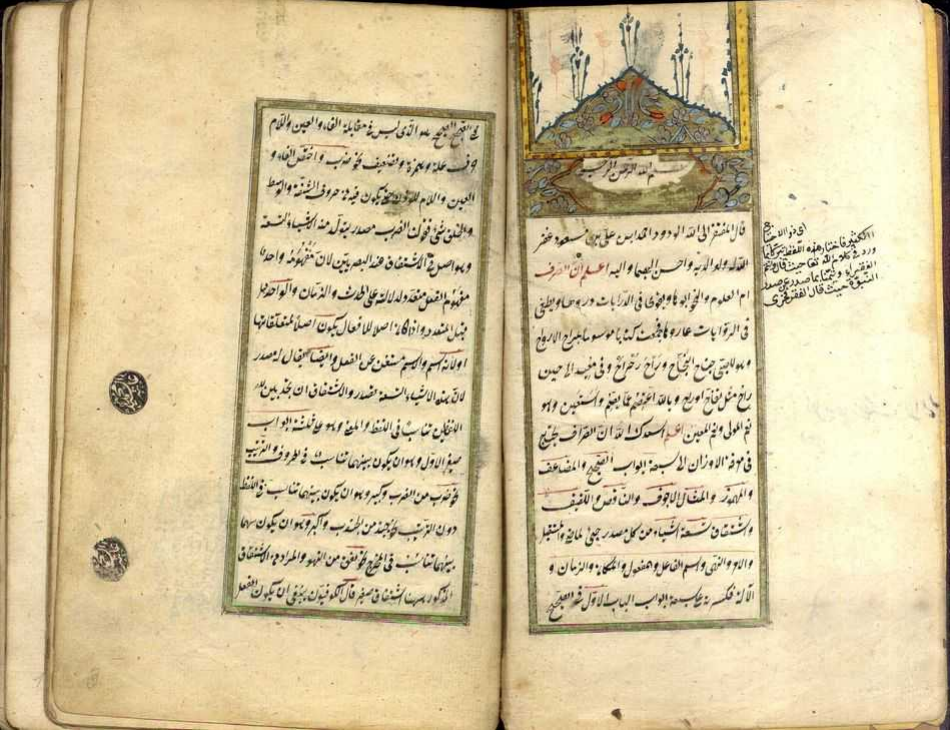 بسم الله الرحمن الرحيم
قال المفتقر الى الله الودود احمد ابن على بن مسعود غفر
الله له ولوالديه واحسن اليهما واليه اعلم ان الصرف
ام العلوم والنحو ابوها ويقوى فى الدرايات داروها ويطغى
فى الروايات عاروها فجمعت كتابا موسوما بمراح الارواح
وهو للصبى جناح النجاح وراح رحراح وفى معدته حين
راح مثل تفاح او راح وبالله اعتصم عما يصم واستعين وهو
نعم المولى ونعم المعين اعلم اسعدك الله ان الصراف يحتاج
فى معرفة الاوزان الى سبعة ابواب الصحيح والمضاعف
والمهموز والمثال والاجوف والناقص واللفيف
واشتقاق تسعة اشياء من كل مصدر وهى الماضى والمستقبل
والامر والنهى واسم الفاعل والمفعول والمكان والزمان و
الآلة فكسرته على سبعة ابواب الباب الاول فى الصحيح
فى الصحيح الصحيح هو الذى ليس فى مقابلة الفاء والعين واللام
حرف علة وهمزة وتضعيف نحو ضرب واختص الفاء و
العين واللام للوزن حتى يكون فيه من حروف الشفة والوسط
والحلق شئ فقولنا الضرب مصدر يتولد منه الاشياء التسعة
وهو اصل فى الاشتقاق عند البصريين لان مفهومه واحد
ومفهوم الفعل متعدد لدلالته على الحدث والزمان والواحد
قبل المتعدد واذا كان اصلا للافعال يكون اصلا لمتعلقاتها
او لانه اسم والاسم مستغن عن الفعل وايضا يقال له مصدر
لان هذه الاشياء التسعة تصدر عنه والاشتقاق ان تجد بين
اللفظين تناسبا فى اللفظ والمعنى وهو على ثلثة انواع
صغير الاول وهو ان يكون بينهما تناسب فى الحروف والترتيب
نحو ضرب من الضرب وكبير وهو ان يكون بينهما تناسب فى اللفظ
دون الترتيب نحو جبذ من الجذب واكبر وهو ان يكون
بينهما تناسب فى المخرج نحو نعق من النهق والمراد من الاشتقاق
المذكور ههنا اشتقاق صغير قال الكوفيون ينبغى ان يكون الفعل